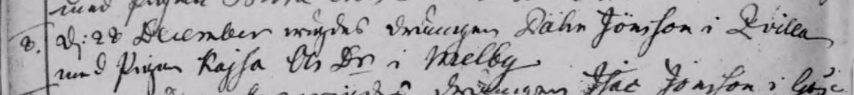 med Pigan
8. d: 28 December wigdes drängen Pähr Jönsson i Qvilla
med Pigan Kajsa Ols Dr i Melby
drängen Isac Jonsson i